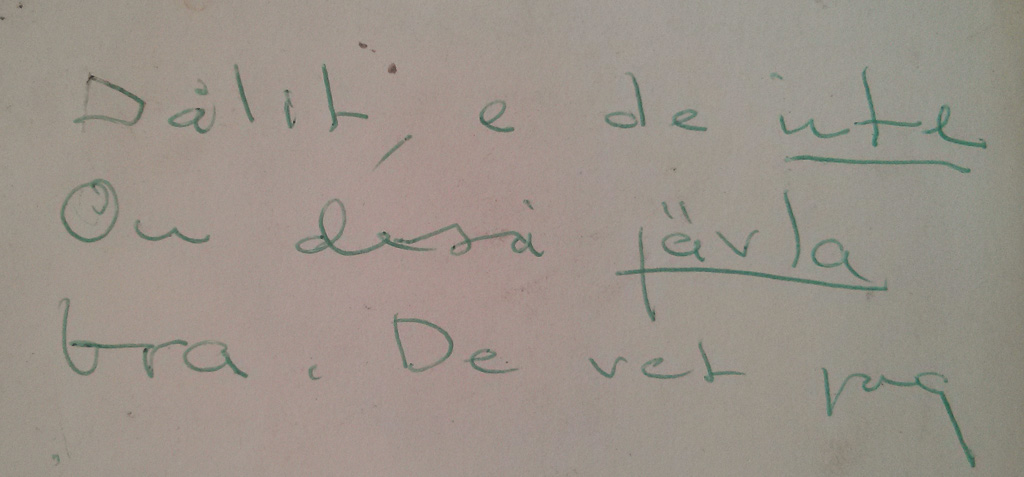 Dålit, e de inte
Ou deså jävla
bra. De vet jag